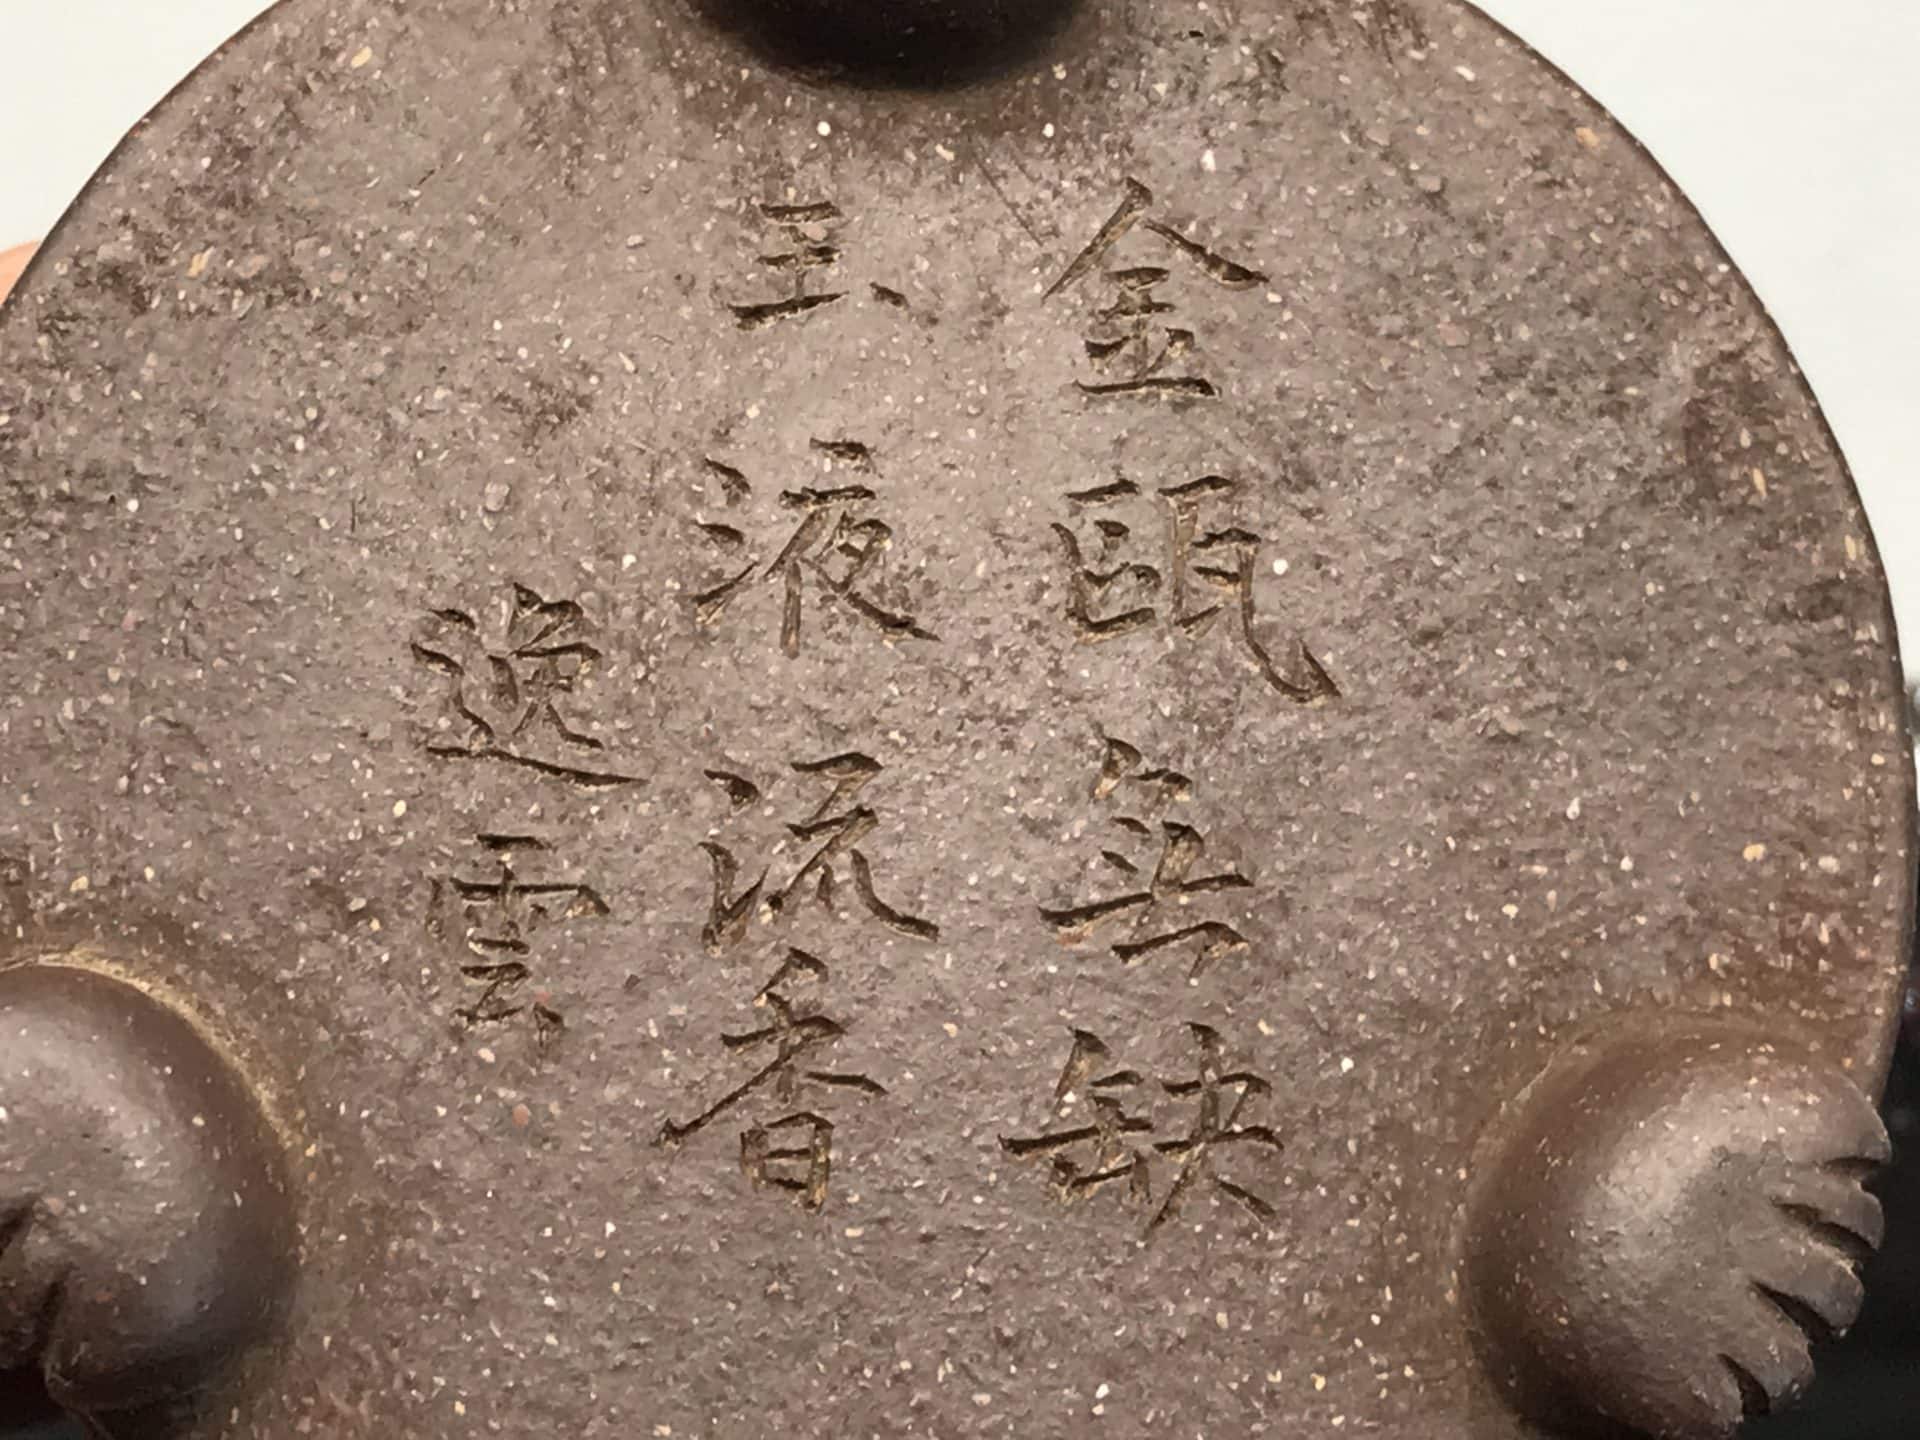 金甌無缺
玉液流香
逸雲